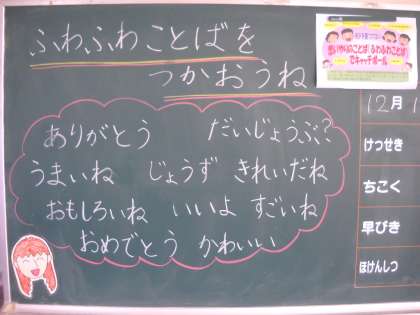 ふわふわことばを
つかおうね
ありがとう だいじょうぶ?
うまいね じょうず きれいだね
おもしろいね いいよ すごいね
おめでとう かわいい
思いやりのことば ふわふわことば
でキャッチボール
12月1
けっせき
ちこく
早びき
ほけんしつ